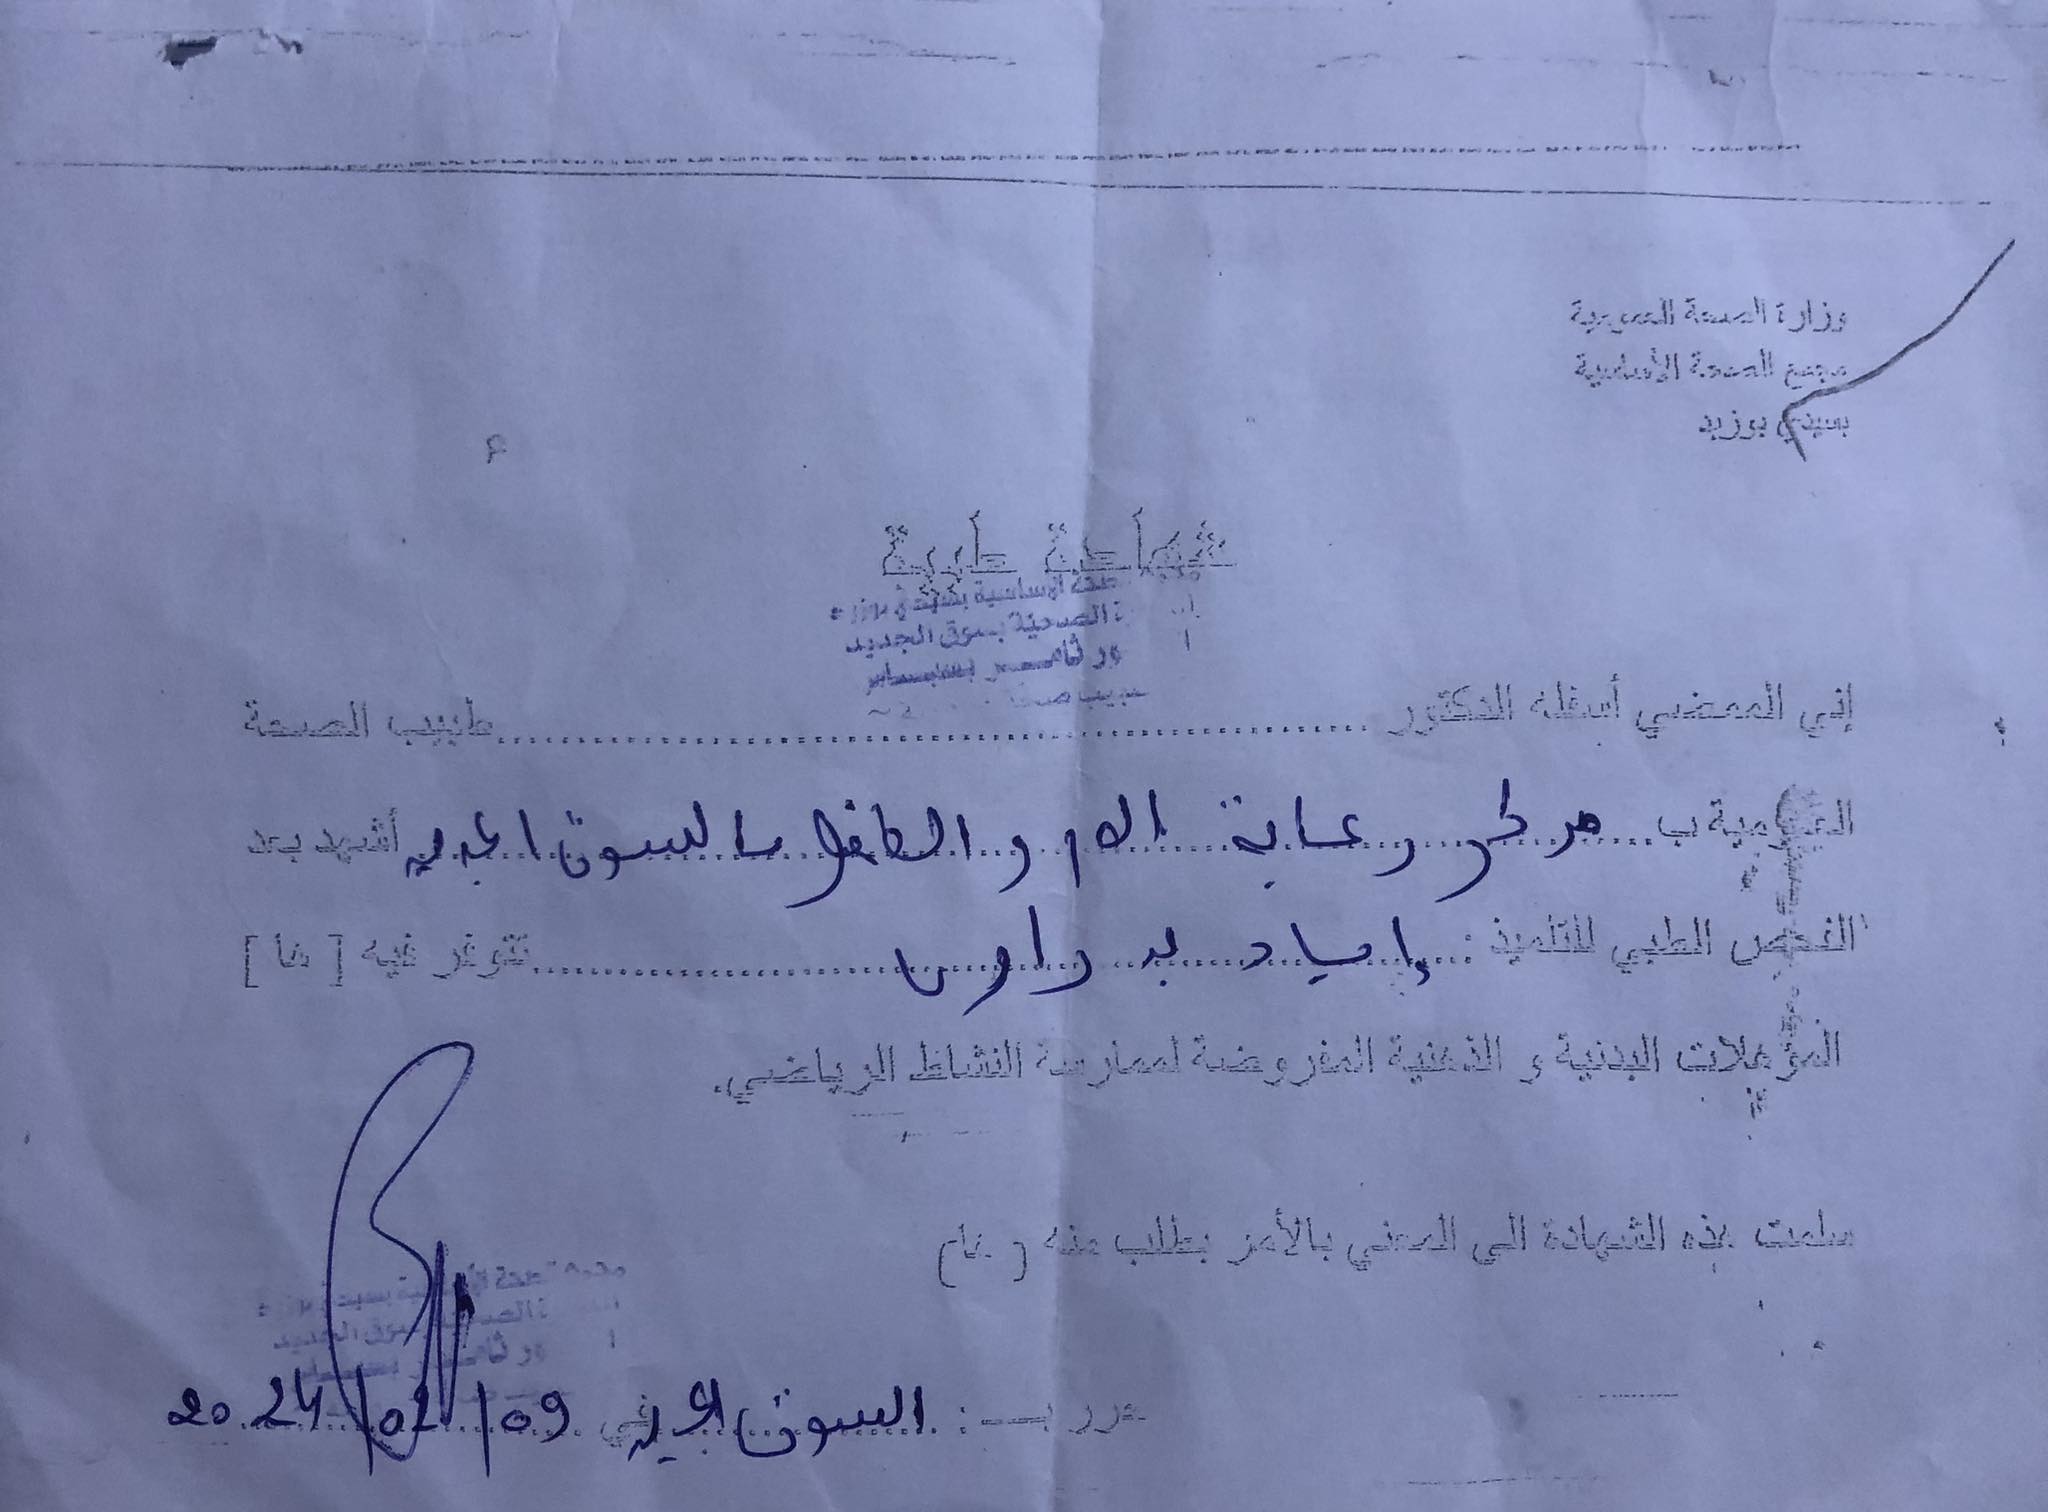 وزارة الصحة العمومية
مجمع الصحة الأساسية
بسيدي بوزيد
شهادة طبية
الأساسية بسيدي بوزيد
الصحية بسوق الجديد
ور ثامر
إني الممضي أسفله الدكتور ........ طبيب الصحة
العمومية ب ... مركز رعاية الأم و الطفل بالسوق الجديد أشهد بعد
الفحص الطبي للتلميذ : إياد بدراوي ........ تتوفر فيه [ ها ]
المؤهلات البدنية و الذهنية المفروضة لممارسة النشاط الرياضي.
سلمت هذه الشهادة الى المعني بالأمر بطلب منه ( ها )
حرر بـــ : السوق الجديد في 09/02/2024